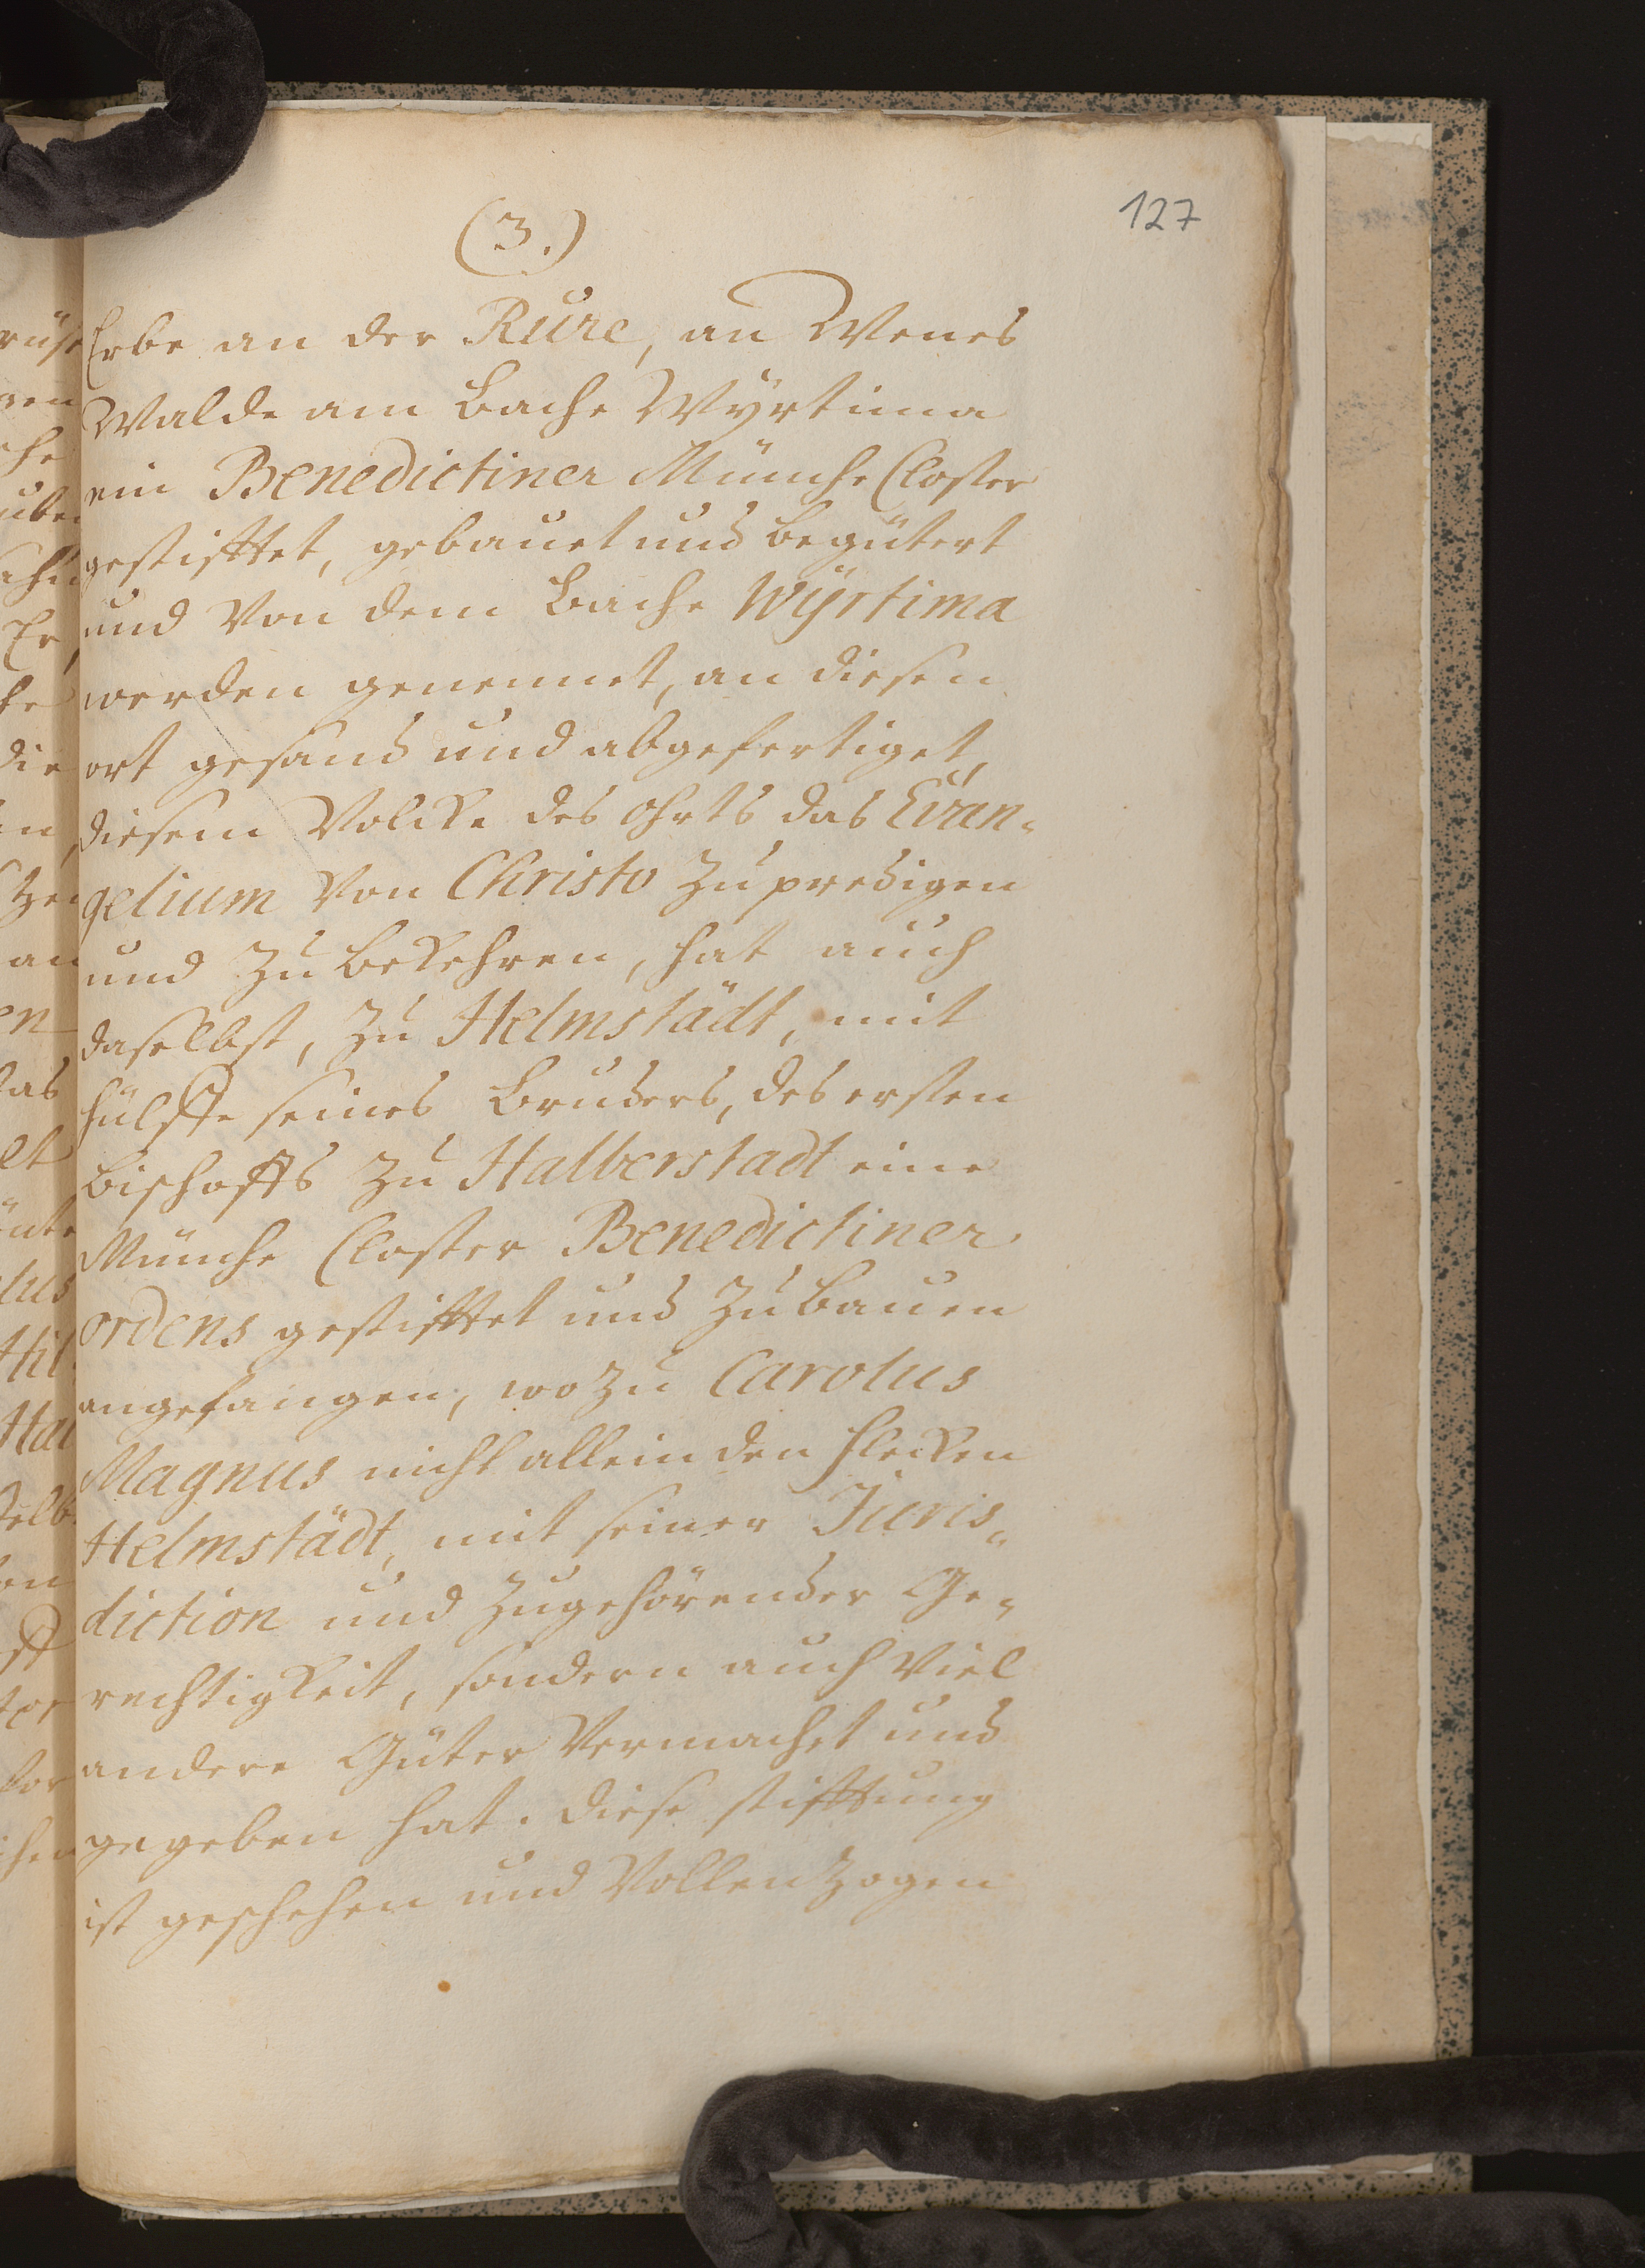 127
(3.)
Erbe an der Rure, an Wenes
Walde am Bache Wyrtima
ein Benedictiner Münche Closter
gestifftet, gebauet und begütert
und von dem Bache Wÿrtima
werden genennet, an diesen
ort gesand und abgefertiget,
diesem Volcke des ohrts das Evan-
gelium von Christo zu predigen
und zu bekehren, hat auch
daselbst, zu Helmstädt, mit
hülffe seines Bruders, des ersten
Bischoffs zu Halberstadt eine
Münche Closter Benedictiner
ordens gestifftet und zu bauen
angefangen, wozu Carolus
Magnus nicht allein den flecken
Helmstädt, mit seiner Juris-
diction und zugehörender Ge-
rechtigkeit, sondern auch viel
andere Güter vermachet und
gegeben hat. diese stifftung
ist geschehen und vollenzogen